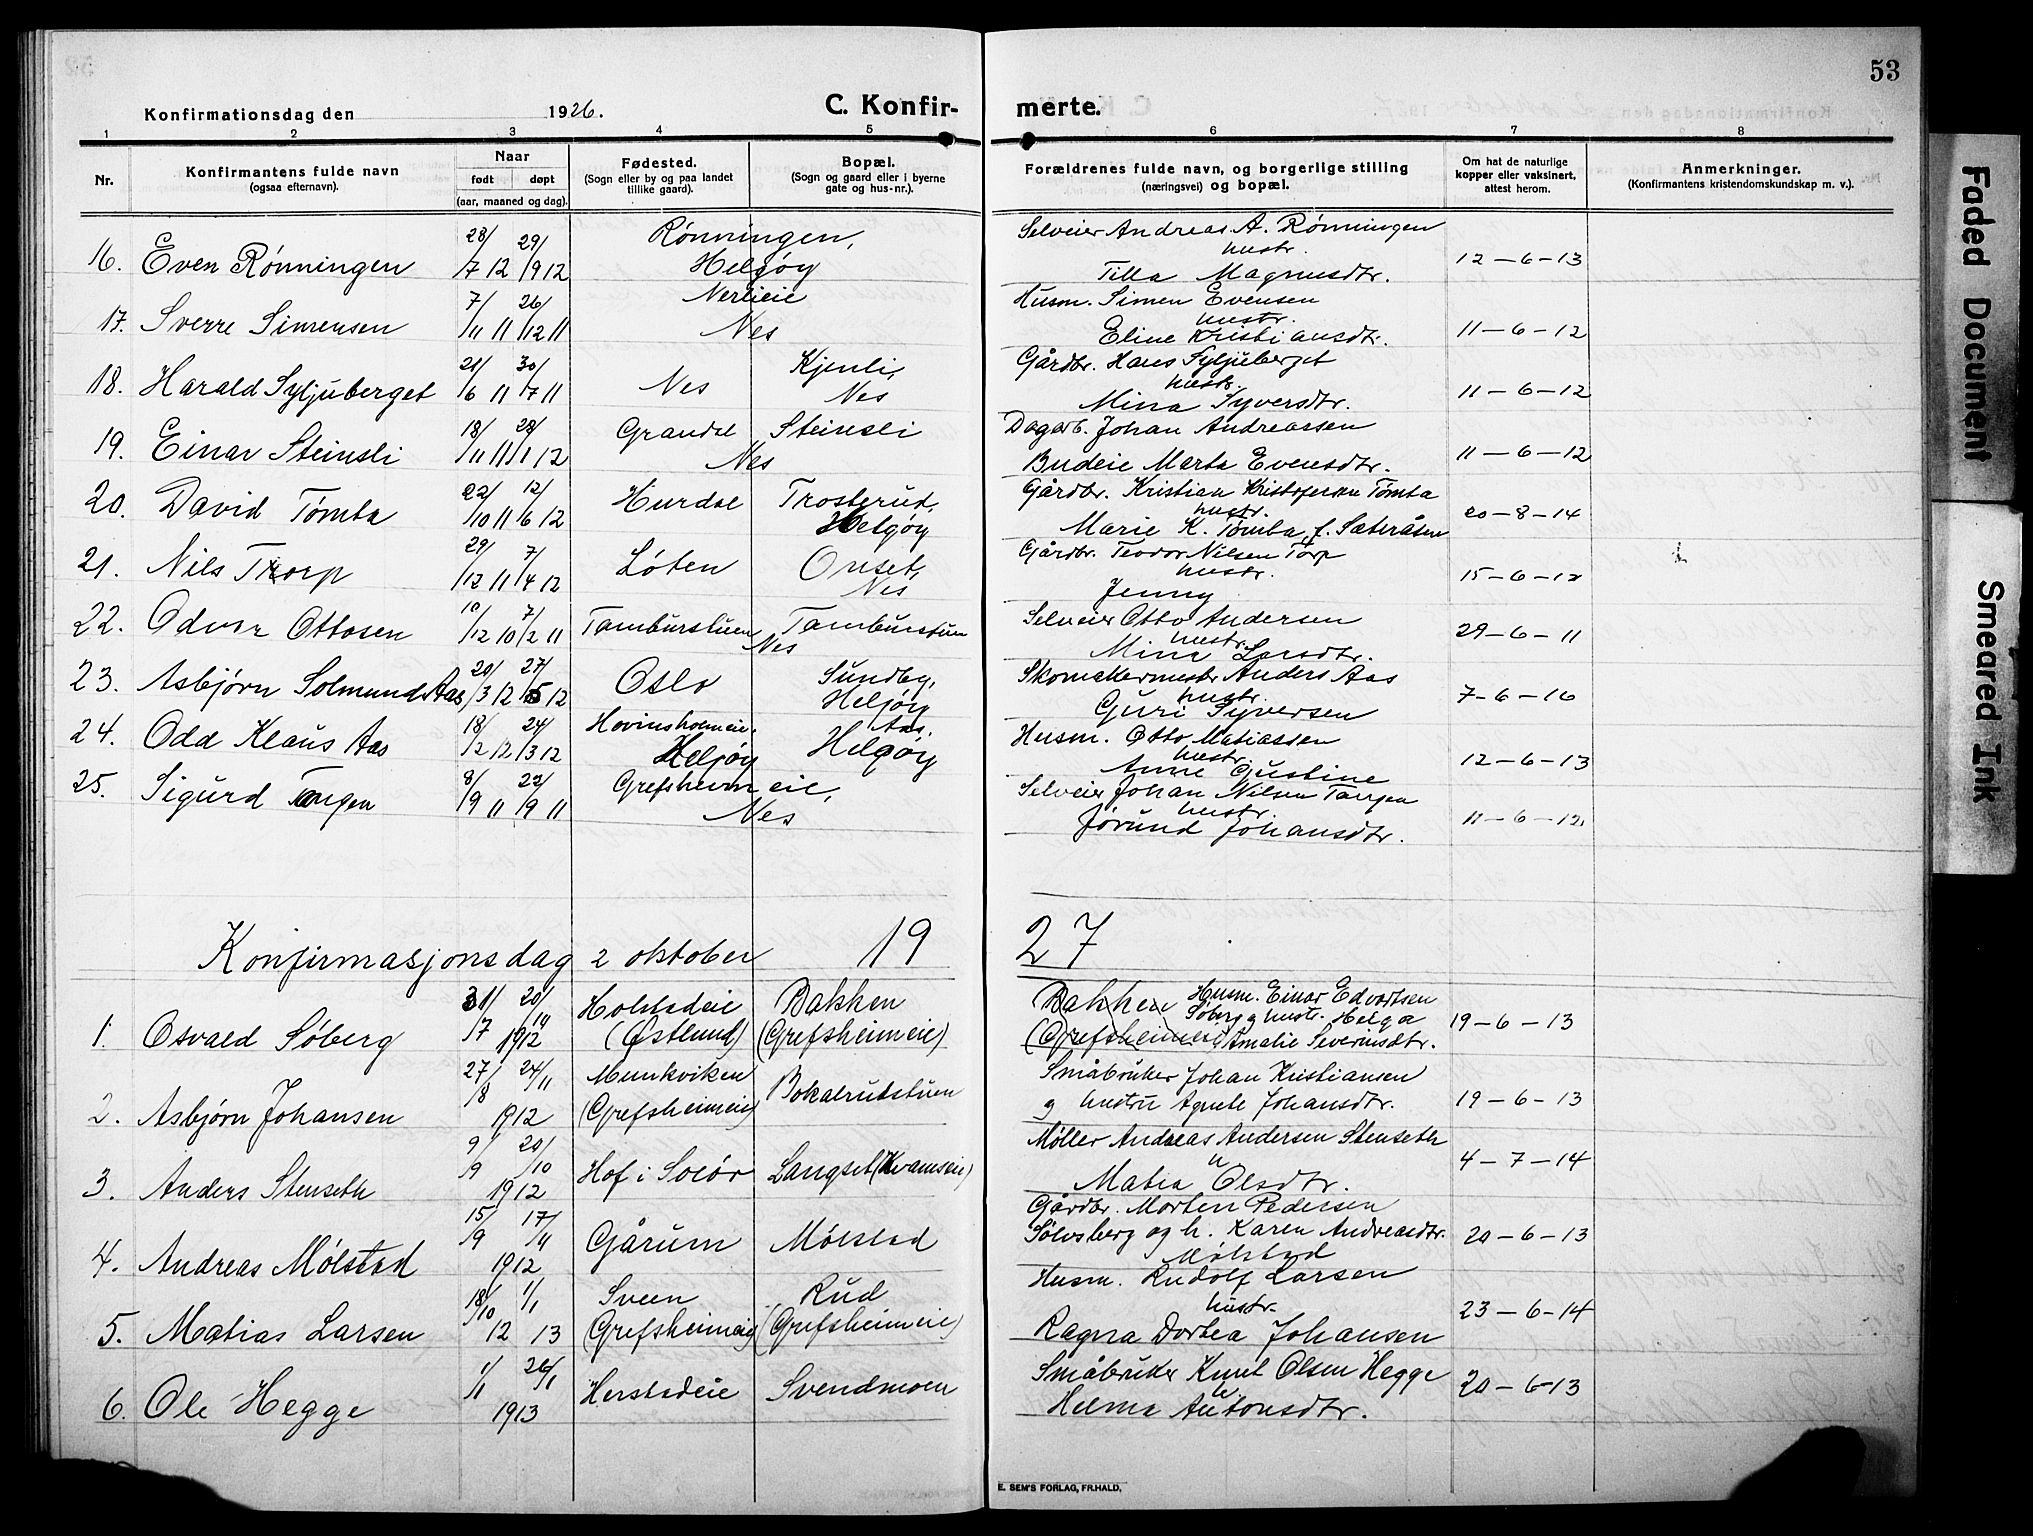 53
Konfirmationsdag den 1926. C. Konfir- merte.
1 2 3 4 5 6 7 8
Nr. Konfirmantens fulde navn (ogsaa efternavn). Naar født døpt (aar, maaned og dag). Fødested. (Sogn eller by og paa landet tillike gaard). Bopæl. (Sogn og gaard eller i byerne gate og hus-nr.). Forældrenes fulde navn, og borgerlige stilling (næringsvei) og bopæl. Om hat de naturlige kopper eller vaksinert, attest herom. Anmerkninger. (Konfirmantens kristendomskundskap m. v.).
16. Even Rønningen 28/7 12 29/9 12 Rønningen, Helgøy Selveier Andreas A. Rønningen hustr. Tilla Magnusdtr. 12-6-13
17. Sverre Simensen 7/11 11 26/12 11 Nerlieie Nes Husm. Simen Evensen hustr. Eline Kristiansdtr. 11-6-12
18. Harald Syljuberget 21/6 11 30/7 11 Nes Kjenli, Nes Gårdbr. Hans Syljuberget hustr. Mina Syversdtr. 11-6-12
19. Einar Steinsli 18/11 11 28/1 12 Grandel Steinsli Nes Dagarb. Johan Andreassen Budeie Marta Evensdtr. 11-6-12
20. David Tømta 22/10 11 12/6 12 Hurdal Trosterud, Helgøy Gårdbr. Kristian Kristofersen Tømta hustr. Marie K. Tømta, f. Sæteråsen 20-8-14
21. Nils Torp 29/12 11 7/4 12 Løten Onset, Nes Gårdbr. Teodor Nilsen Torp hustr. Jenny 15-6-12
22. Odvar Ottosen 10/12 10 7/2 11 Tamburstuen Tamburstuen Nes Selveier Otto Andersen hustr. Mina Larsdtr. 29-6-11
23. Asbjørn Solmunds Aas 20/3 12 27/5 12 Oslo Sundby, Helgøy Skomakermestr Anders Aas hustr. Guri Syversen 7-6-16
24. Odd Klaus Aas 18/2 12 24/3 12 Hovinsholmeie, Helgøy Aas, Helgøy Husm. Otto Matiassen hustr. Anne Gustine 12-6-13
25. Sigurd Tangen 8/9 11 22/9 11 Grefsheimeie, Nes Selveier Johan Nilsen Tangen hustr. Jørund Johansdtr. 11-6-12
Konfirmasjonsdag 2 oktober 19 27
1. Osvald Søberg 31/7 20/11 1912 Holstadeie (Østlund) Bakken (Grefsheimeie) Bakken (Grefsheimeie) Husm. Einar Edvartsen Søberg og hustr. Helga Amalie Severinsdtr. 19-6-13
2. Asbjørn Johansen 27/8 24/11 1912 Munkviken (Grefsheimeie) Bokalrudstuen Småbruker Johan Kristiansen og hustru Agnete Johansdtr. 19-6-13
3. Anders Stenseth 9/9 20/10 1912 Hof i Solør Langset (Kvamseie) Møller Andreas Andersen Stenseth h Matea Olsdtr. 4-7-14
4. Andreas Mølstad 15/9 17/11 1912 Gårum Mølstad Gårdbr. Morten Pedersen Sølvsberg og h. Karen Andreasdtr. Mølstad 20-6-13
5. Matias Larsen 18/10 12 1/1 13 Sveen (Grefsheimeie) Rud (Grefsheimeie) Husm. Rudolf Larsen hustr. Ragna Dortea Johansen 23-6-14
6. Ole Hegge 1/1 26/1 1913 Herstadeie Svendmoen Småbruker Knut Olsen Hegge h Helma Antonsdtr. 20-6-13
E. SEM'S FORLAG, FR.HALD.
Faded Document
Smeared Ink